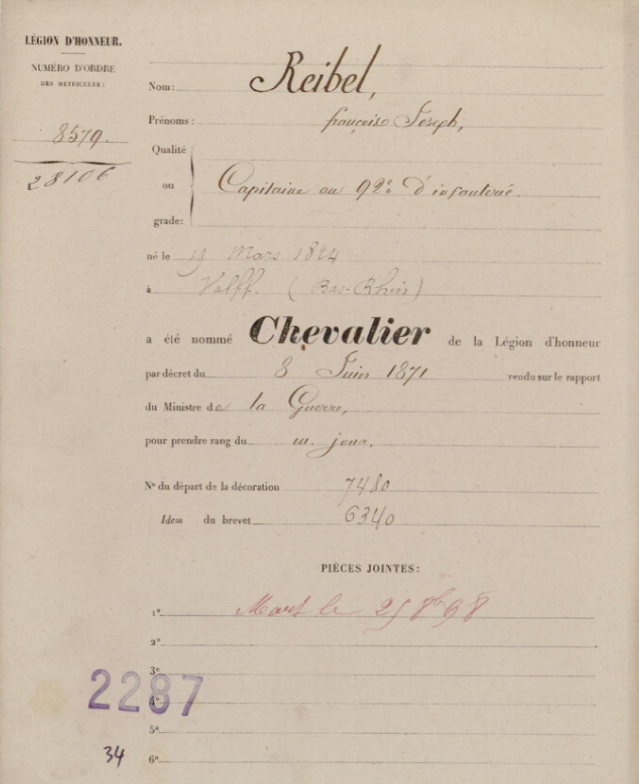 LÉGION D'HONNEUR.
NUMÉRO D'ORDRE
DES MATRICULES:
8579.
28106
Nom: Reibel,
Prénoms: françois Joseph,
Qualité
ou
grade: Capitaine au 92e d'infanterie.
né le 19 Mars 1824
à Valff. (Bas-Rhin)
a été nommé Chevalier de la Légion d'honneur
par décret du 8 Juin 1871 rendu sur le rapport
du Ministre de la Guerre,
pour prendre rang du m. jour.
No du départ de la décoration 7480
Idem du brevet 6340
PIÈCES JOINTES:
1o Mort le 25 8bre 98
2o
3o
4o
5o
6o
2287
34